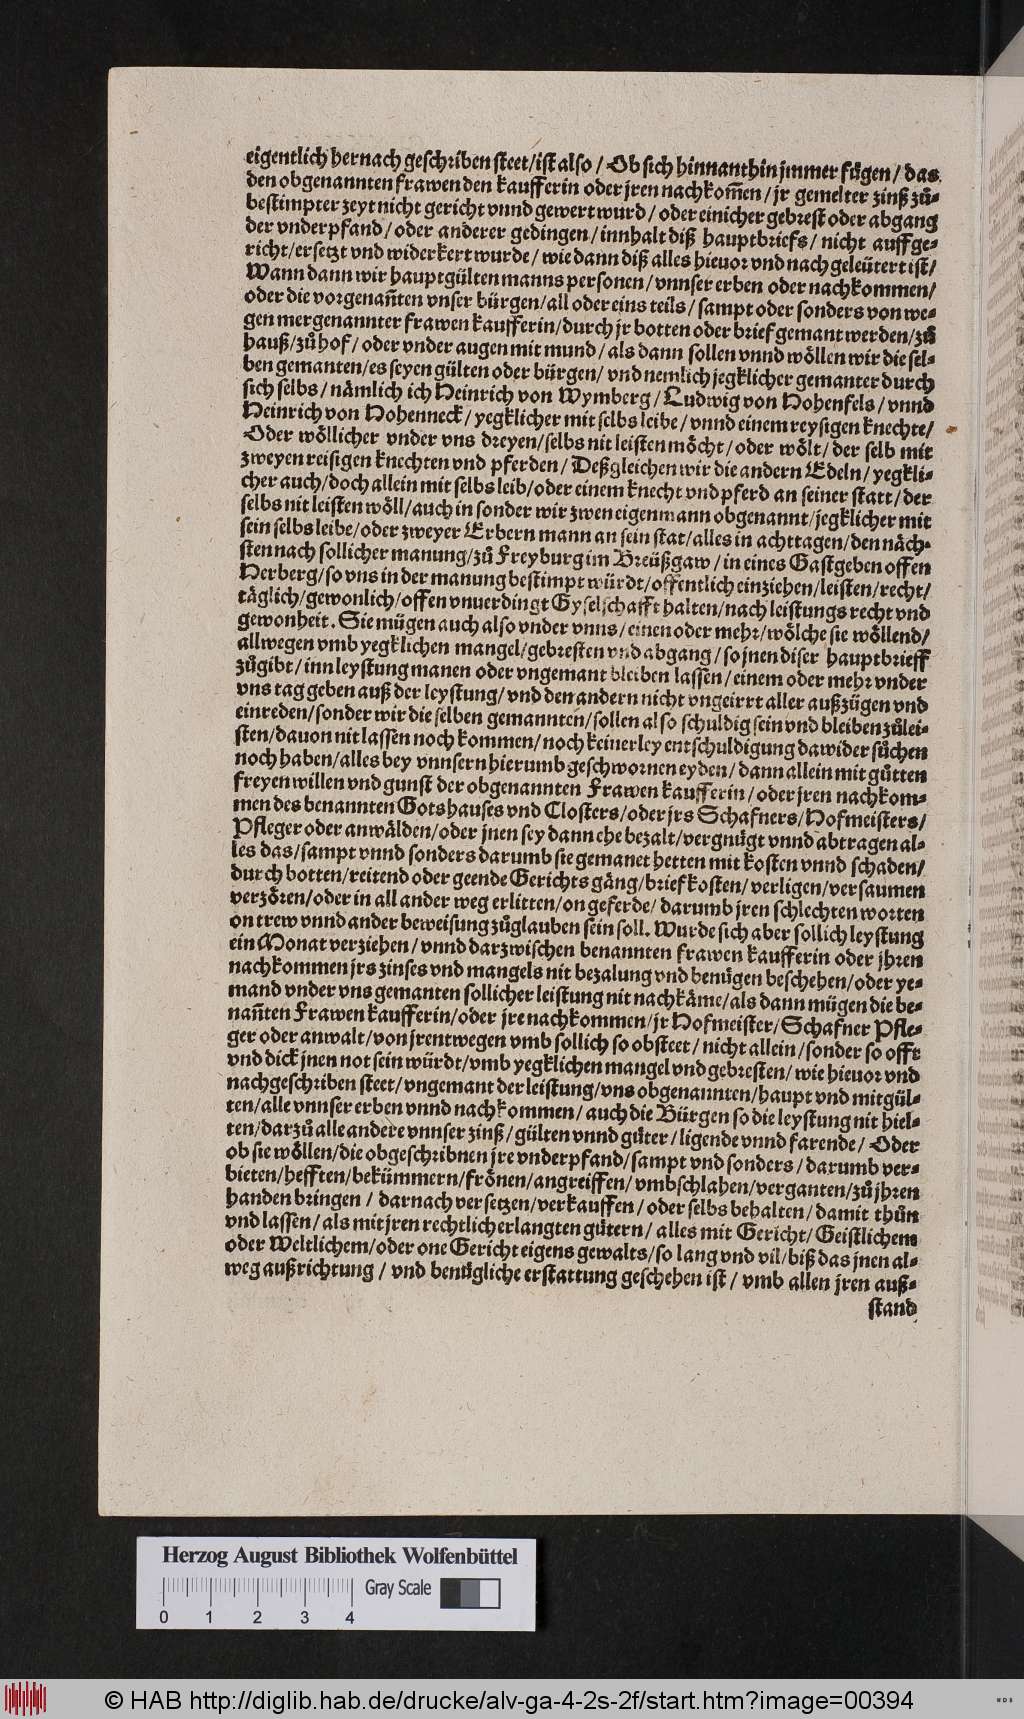 eigentlich hernach geschriben steet/ist also / Ob sich hinnanthin jmmer fůgen / das
den obgenannten frawen den kaufferin oder jren nachkom̃en / jr gemelter zinß zů-
bestimpter zeyt nicht gericht vnnd gewert wurd / oder einicher gebrest oder abgang
der vnderpfand / oder anderer gedingen / innhalt diß hauptbriefs / nicht auffge-
richt/ersetzt vnd widerkert wurde / wie dann diß alles hieuor vnd nach geleütert ist/
Wann dann wir hauptgülten manns personen / vnnser erben oder nachkommen/
oder die vorgenañten vnser bürgen/all oder eins teils / sampt oder sonders von we-
gen mergenannter frawen kaufferin/durch jr botten oder brief gemant werden/zů
hauß/zů hof / oder vnder augen mit mund / als dann sollen vnnd wöllen wir die sel-
ben gemanten/es seyen gülten oder bürgen/ vnd nemlich jegklicher gemanter durch
sich selbs / nämlich ich Heinrich von Wymberg / Ludwig von Hohenfels / vnnd
Heinrich von Hohenneck / yegklicher mit selbs leibe / vnnd einem reysigen knechte/
Oder wöllicher vnder vns dreyen/selbs nit leisten möcht / oder wölt/ der selb mit
zweyen reisigen knechten vnd pferden / Deßgleichen wir die andern Edeln / yegkli-
cher auch/doch allein mit selbs leib/oder einem knecht vnd pferd an seiner statt / der
selbs nit leisten wöll/auch in sonder wir zwen eigenmann obgenannt/jegklicher mit
sein selbs leibe/oder zweyer Erbern mann an sein stat/alles in acht tagen/den näch-
sten nach sollicher manung/zů Freyburg im Breüßgaw / in eines Gastgeben offen
Herberg/so vns in der manung bestimpt würdt/offentlich einziehen/leisten/recht/
täglich/gewonlich/offen vnuerdingt Gyselschafft halten/nach leistungs recht vnd
gewonheit. Sie mügen auch also vnder vnns / einen oder mehr/wölche sie wöllend/
allwegen vmb yegklichen mangel/gebresten vnd abgang / so jnen diser hauptbrieff
zůgibt / inn leystung manen oder vngemant bleiben lassen / einem oder mehr vnder
vns tag geben auß der leystung/ vnd den andern nicht vngeirrt aller außzügen vnd
einreden/sonder wir die selben gemannten/sollen also schuldig sein vnd bleiben zůlei-
sten/dauon nit lassen noch kommen/noch keinerley entschuldigung dawider sůchen
noch haben/alles bey vnnsern hierumb geschwornen eyden/ dann allein mit gůtten
freyen willen vnd gunst der obgenannten Frawen kaufferin / oder jren nachkom-
men des benannten Gotshauses vnd Closters/oder jrs Schafners/Hofmeisters/
Pfleger oder anwälden/oder jnen sey dann ehe bezalt/vergnügt vnnd abtragen al-
les das/sampt vnnd sonders darumb sie gemanet hetten mit kosten vnnd schaden/
durch botten/reitend oder geende Gerichts gäng/brief kosten/ verligen/versaumen
verzören/oder in all ander weg erlitten/on geferde/ darumb jren schlechten worten
on trew vnnd ander beweisung zůglauben sein soll. Wurde sich aber sollich leystung
ein Monat verziehen / vnnd darzwischen benannten frawen kaufferin oder jhren
nachkommen jrs zinses vnd mangels nit bezalung vnd benůgen beschehen/oder ye-
mand vnder vns gemanten sollicher leistung nit nachkäme/als dann mügen die be-
nañten Frawen kaufferin/oder jre nachkommen/jr Hofmeister/Schafner Pfle-
ger oder anwalt/von jrentwegen vmb sollich so obsteet / nicht allein/sonder so offt
vnd dick jnen not sein würdt/vmb yegklichen mangel vnd gebresten/ wie hieuor vnd
nachgeschriben steet/vngemant der leistung/vns obgenannten/haupt vnd mitgül-
ten/alle vnnser erben vnnd nachkommen / auch die Bürgen so die leystung nit hiel-
ten/darzů alle andere vnnser zinß / gülten vnnd güter / ligende vnnd farende / Oder
ob sie wöllen/die obgeschribnen jre vnderpfand/sampt vnd sonders / darumb ver-
bieten/hefften/bekümmern/frönen/angreiffen/ vmbschlahen/verganten/zů jhren
handen bringen / darnach versetzen/verkauffen/ oder selbs behalten/ damit thůn
vnd lassen / als mit jren rechtlich erlangten gütern / alles mit Gericht/Geistlichem
oder Weltlichem/oder one Gericht eigens gewalts/so lang vnd vil/biß das jnen al-
weg außrichtung / vnd benügliche erstattung geschehen ist / vmb allen jren auß-
stand
Herzog August Bibliothek Wolfenbüttel
Gray Scale
0 1 2 3 4
© HAB http://diglib.hab.de/drucke/alv-ga-4-2s-2f/start.htm?image=00394